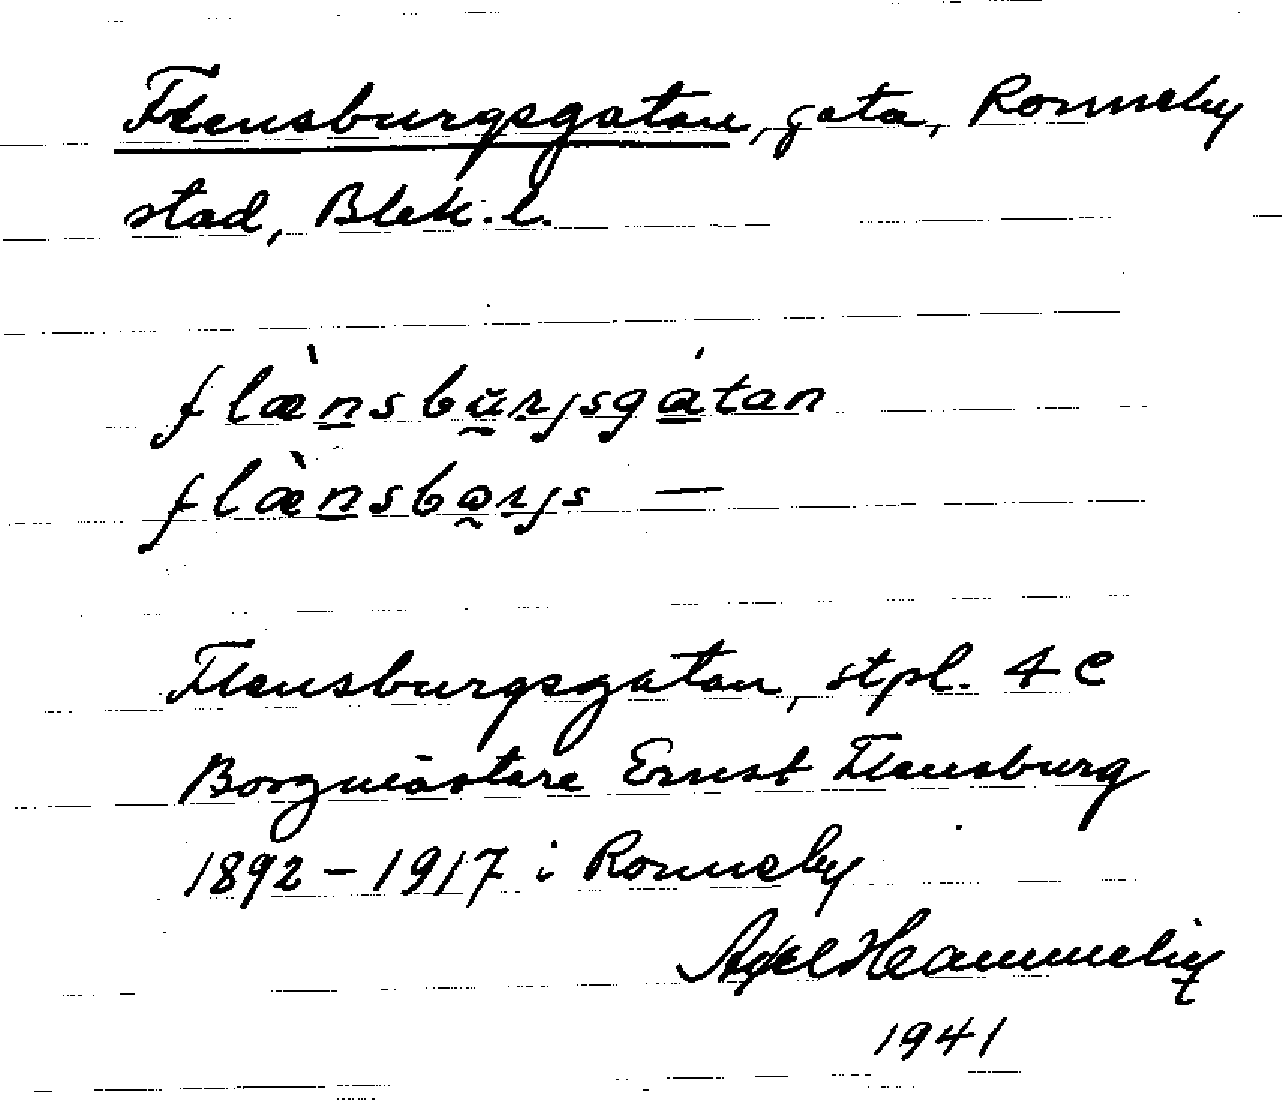 Flensburgsgatan, gata, Ronneby
stad, Blek. l.
flæ̀nsbu̯rjsgátan
flæ̀nsbə̯rjs —
Flensburgsgatan, stpl. 4 C
Borgmästare Ernst Flensburg
1892 – 1917 i Ronneby
Axel
1941